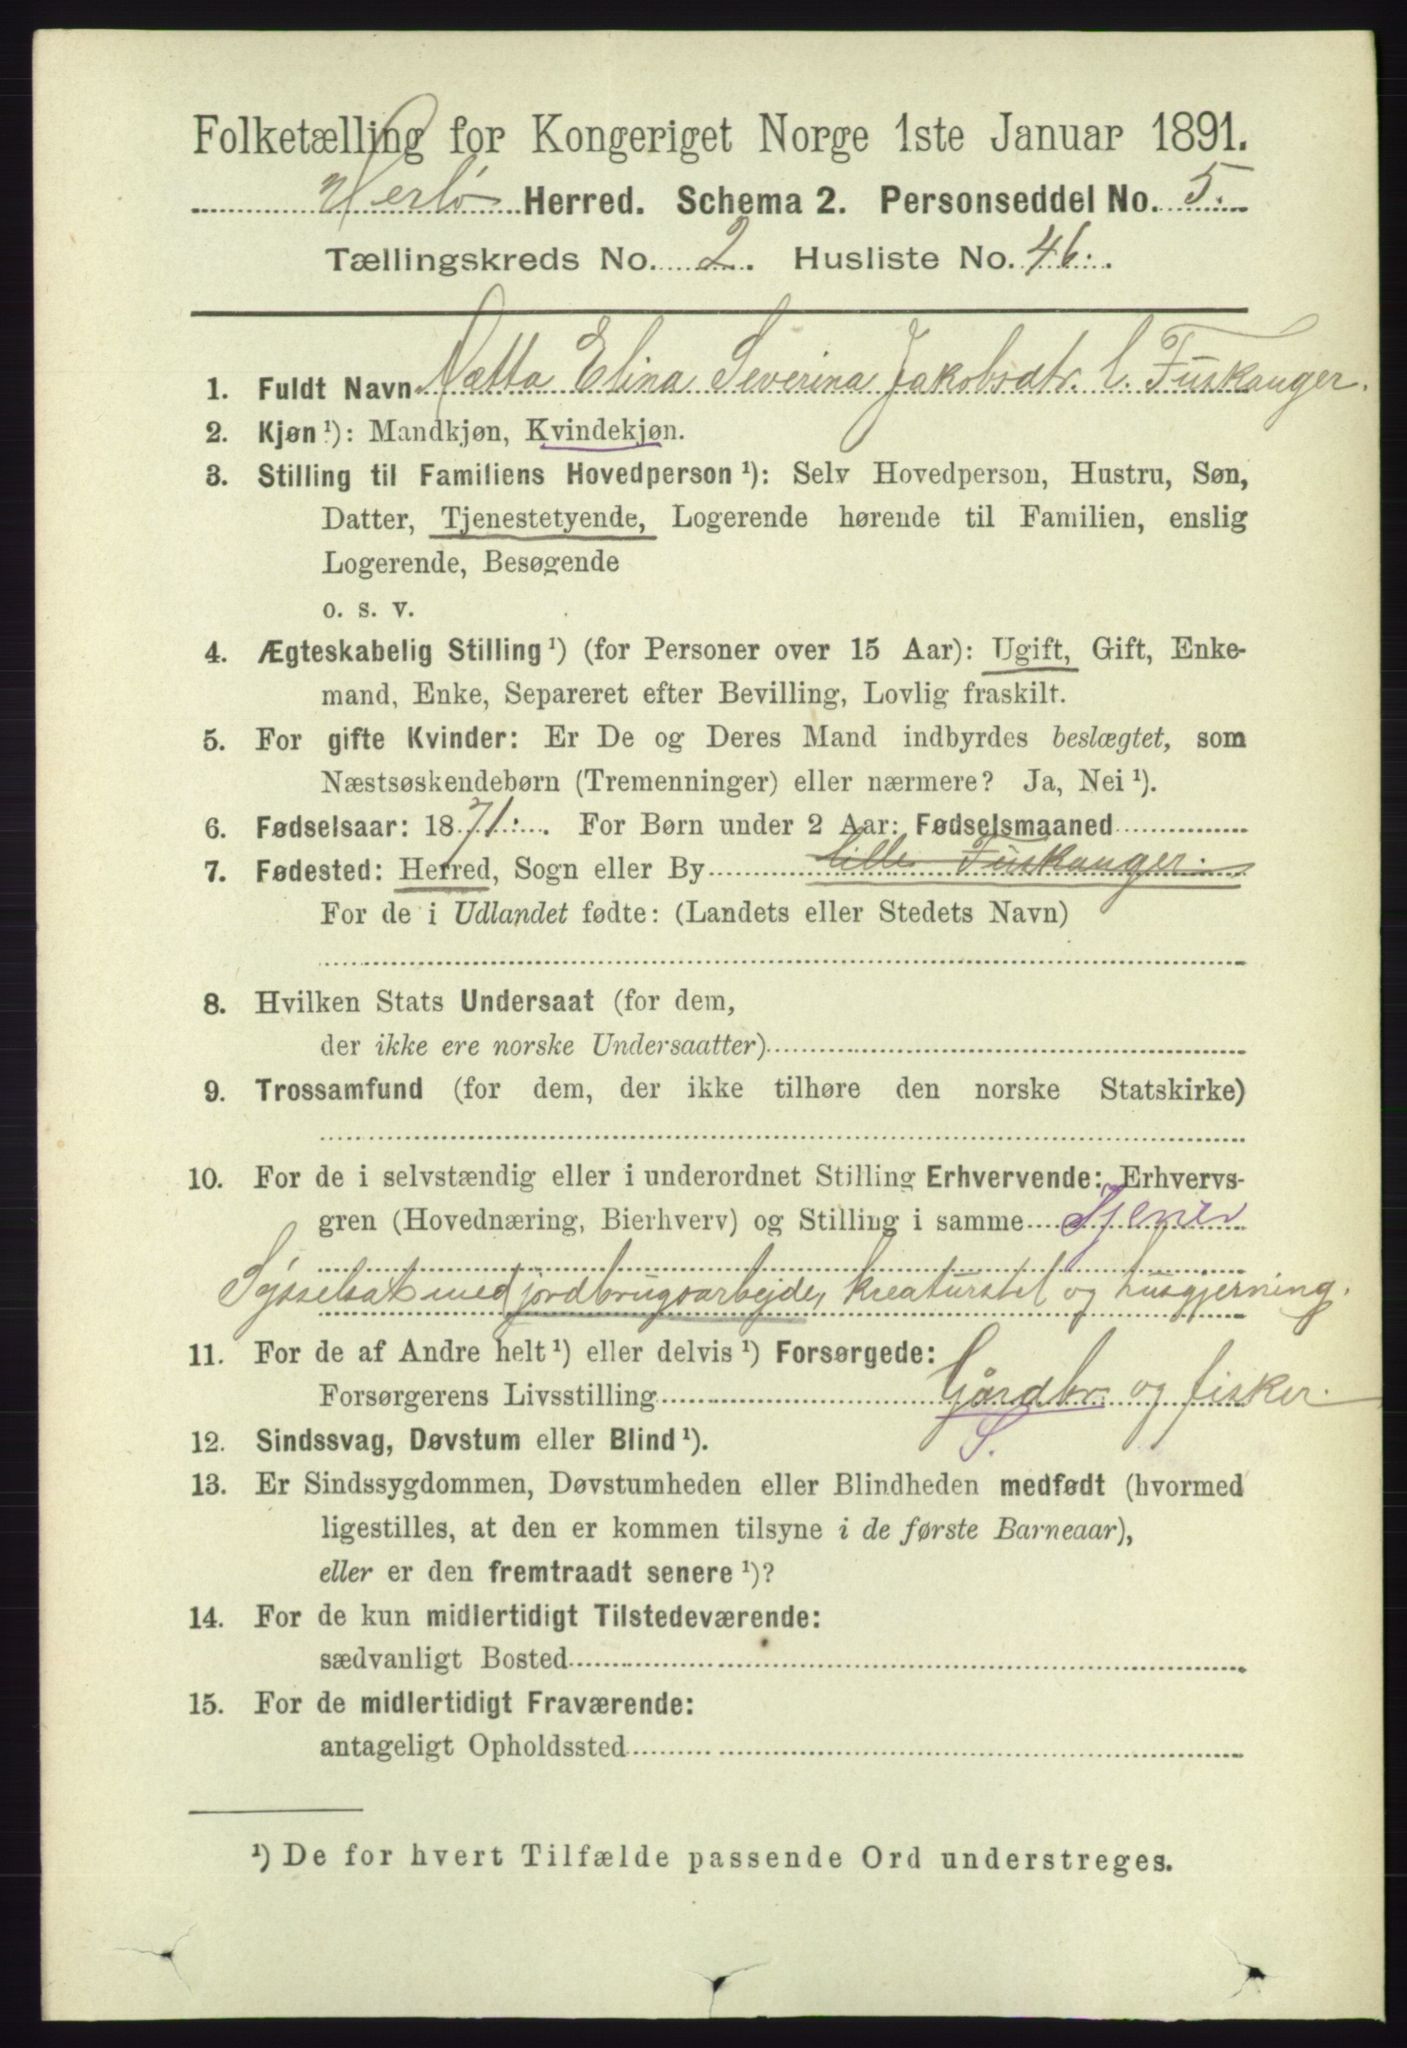 Folketælling for Kongeriget Norge 1ste Januar 1891.
Herlø Herred. Schema 2. Personseddel No. 5.
Tællingskreds No. 2. Husliste No. 46.
1. Fuldt Navn Netta Elina Severina Jakobsdtr. l. Fuskanger.
2. Kjøn ¹): Mandkjøn, Kvindekjøn.
3. Stilling til Familiens Hovedperson ¹): Selv Hovedperson, Hustru, Søn,
Datter, Tjenestetyende, Logerende hørende til Familien, enslig
Logerende, Besøgende
o. s. v.
4. Ægteskabelig Stilling ¹) (for Personer over 15 Aar): Ugift, Gift, Enke-
mand, Enke, Separeret efter Bevilling, Lovlig fraskilt.
5. For gifte Kvinder: Er De og Deres Mand indbyrdes beslægtet, som
Næstsøskendebørn (Tremenninger) eller nærmere? Ja, Nei ¹).
6. Fødselsaar: 1871. For Børn under 2 Aar: Fødselsmaaned
7. Fødested: Herred, Sogn eller By Lille Fuskanger.
For de i Udlandet fødte: (Landets eller Stedets Navn)
8. Hvilken Stats Undersaat (for dem,
der ikke ere norske Undersaatter)
9. Trossamfund (for dem, der ikke tilhøre den norske Statskirke)
10. For de i selvstændig eller i underordnet Stilling Erhvervende: Erhvervs-
gren (Hovednæring, Bierhverv) og Stilling i samme
Sysselsat med jordbrugsarbejde, kreaturstel og husgjerning.
11. For de af Andre helt ¹) eller delvis ¹) Forsørgede:
Forsørgerens Livsstilling Gårdbr. og fisker.
12. Sindssvag, Døvstum eller Blind ¹). S.
13. Er Sindssygdommen, Døvstumheden eller Blindheden medfødt (hvormed
ligestilles, at den er kommen tilsyne i de første Barneaar),
eller er den fremtraadt senere ¹)?
14. For de kun midlertidigt Tilstedeværende:
sædvanligt Bosted
15. For de midlertidigt Fraværende:
antageligt Opholdssted
¹) De for hvert Tilfælde passende Ord understreges.